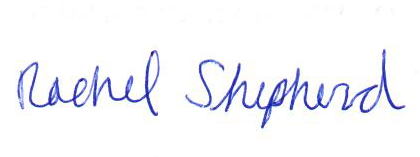 Rachel Shepherd